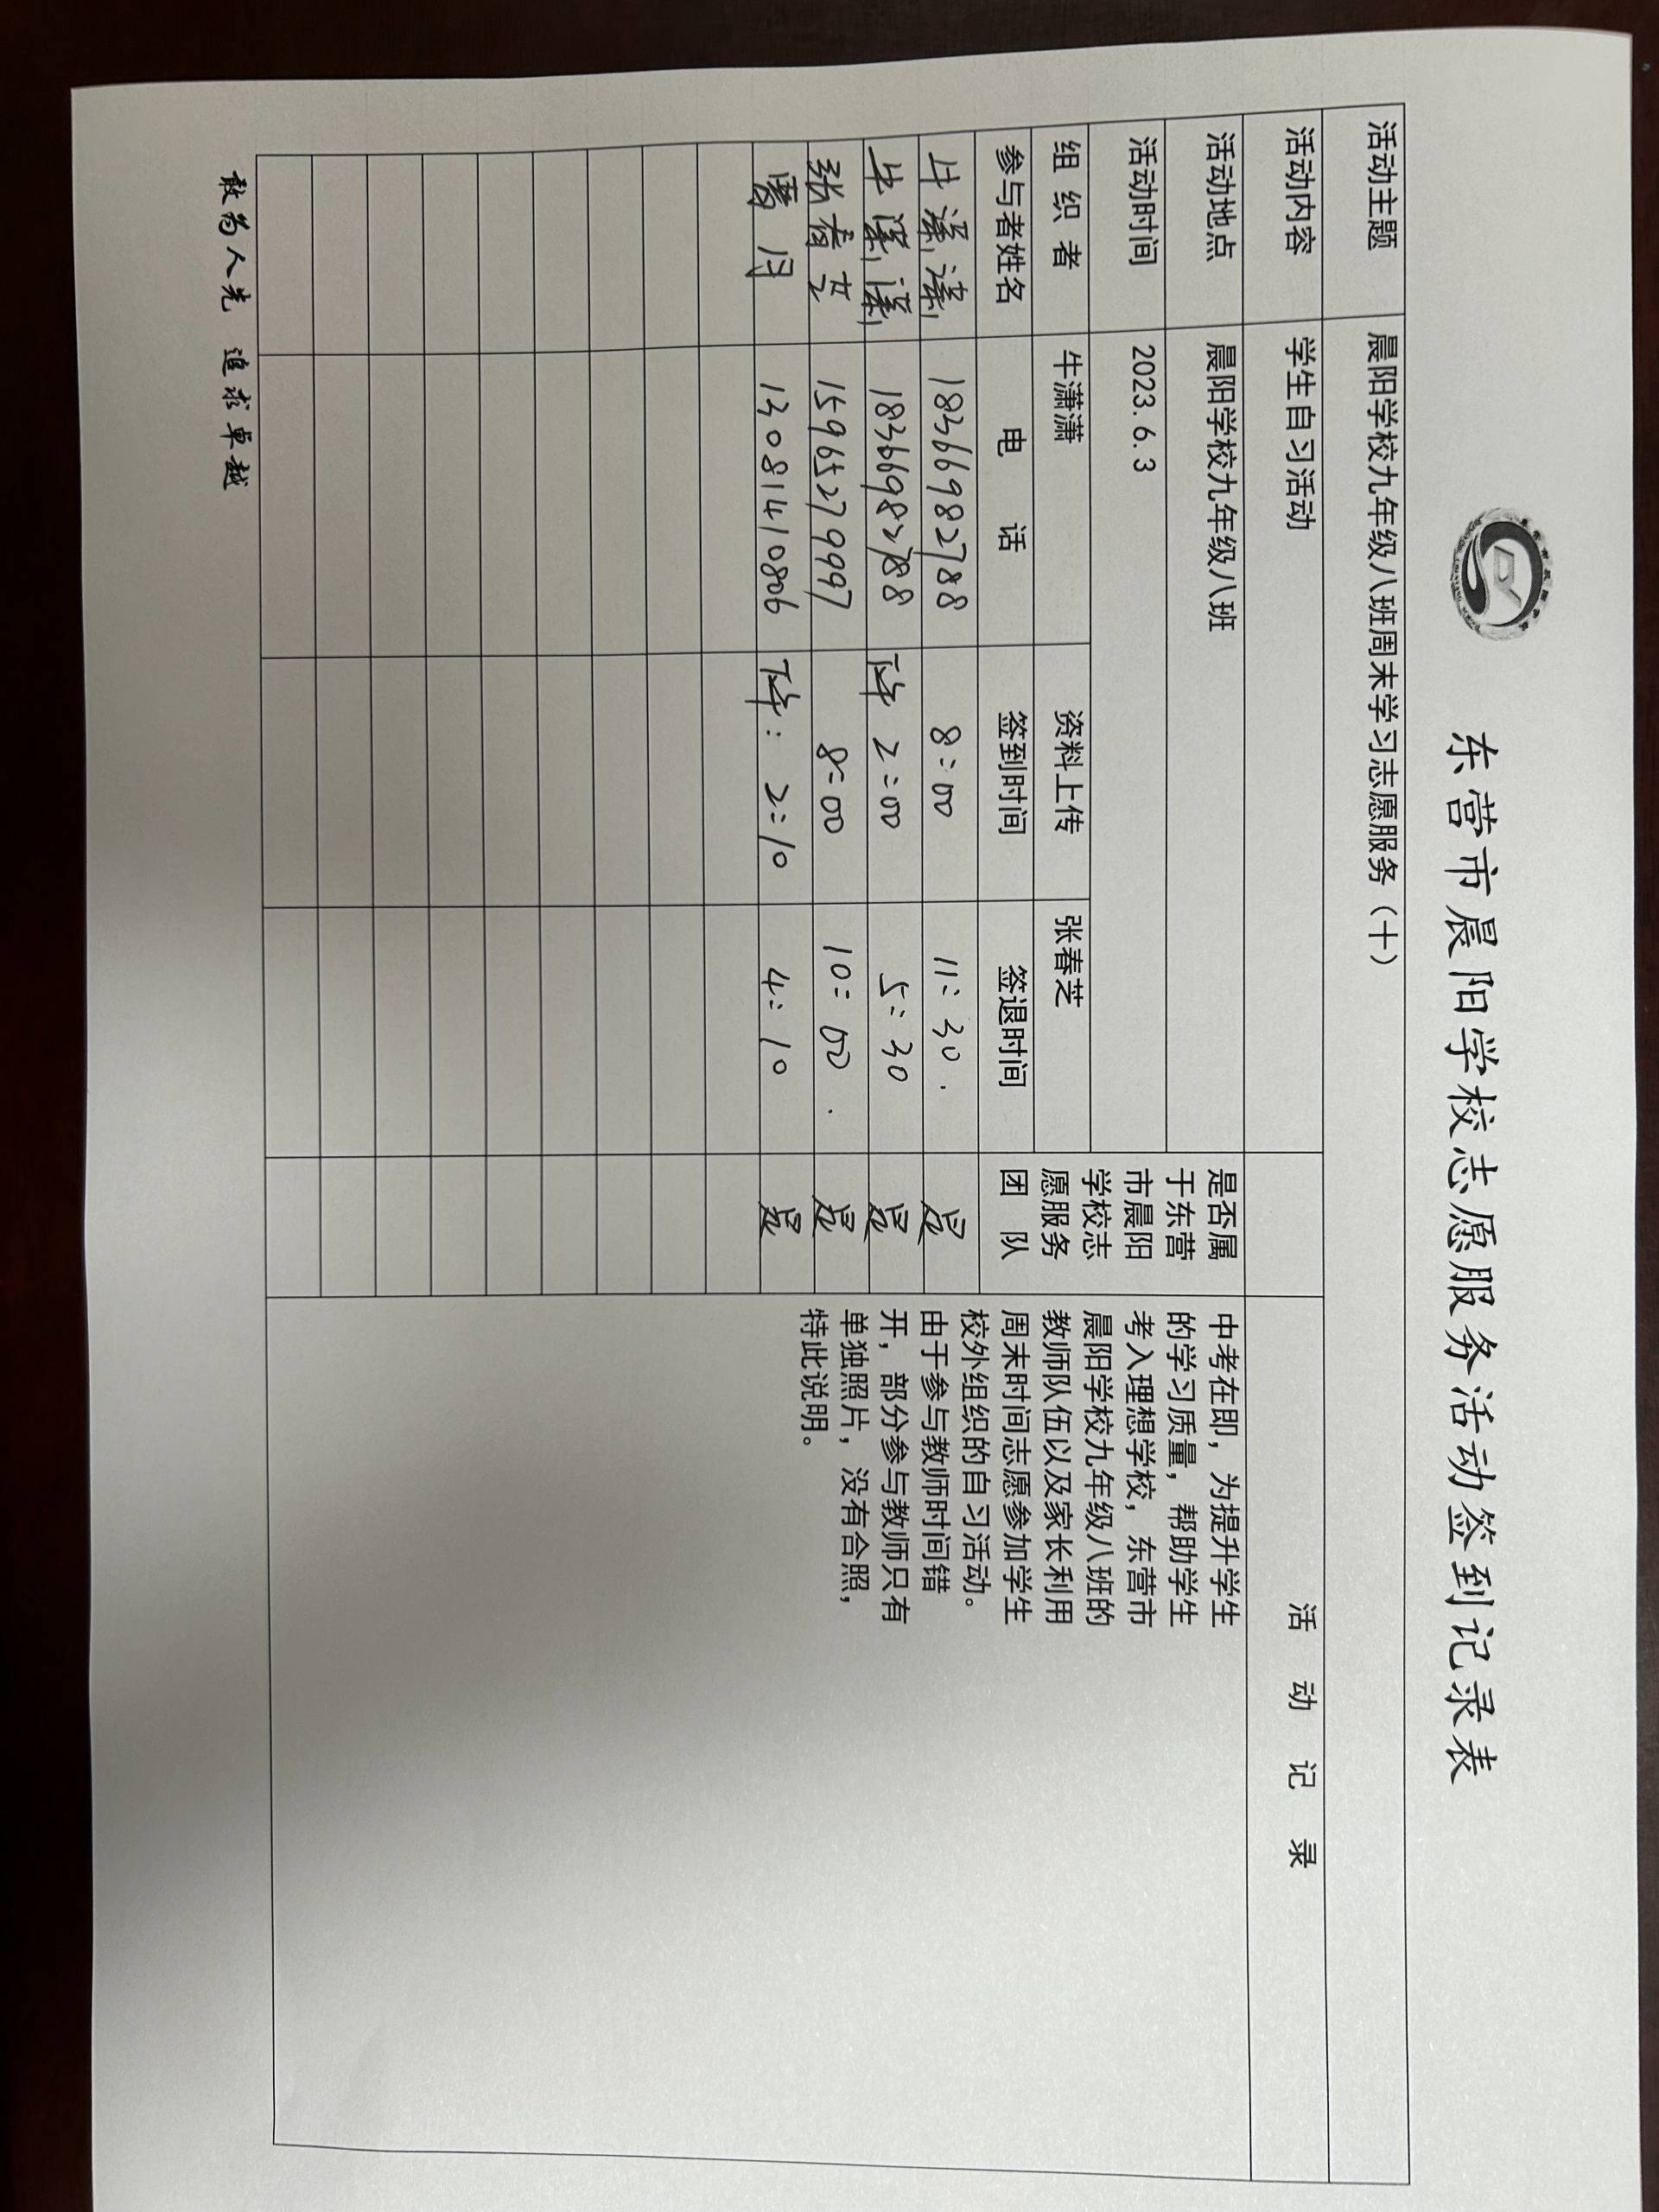 东营市晨阳学校志愿服务活动签到记录表
活动主题 晨阳学校九年级八班周末学习志愿服务（十）
活动内容 学生自习活动 活动记录
活动地点 晨阳学校九年级八班
活动时间 2023.6.3
组织者 牛潇潇 资料上传 张春芝
参与者姓名 电话 签到时间 签退时间
是否属
于东营
市晨阳
学校志
愿服务
团队
牛潇潇 18366982788 8:00 11:30. 是
牛潇潇 18366982788 下午 2:00 5:30 是
张春芝 15965279997 8:00 10:00. 是
月 13081410806 下午: 2:10 4:10 是
中考在即，为提升学生
的学习质量，帮助学生
考入理想学校，东营市
晨阳学校九年级八班的
教师队伍以及家长利用
周末时间志愿参加学生
校外组织的自习活动。
由于参与教师时间错
开，部分参与教师只有
单独照片，没有合照，
特此说明。
敢为人先 追求卓越